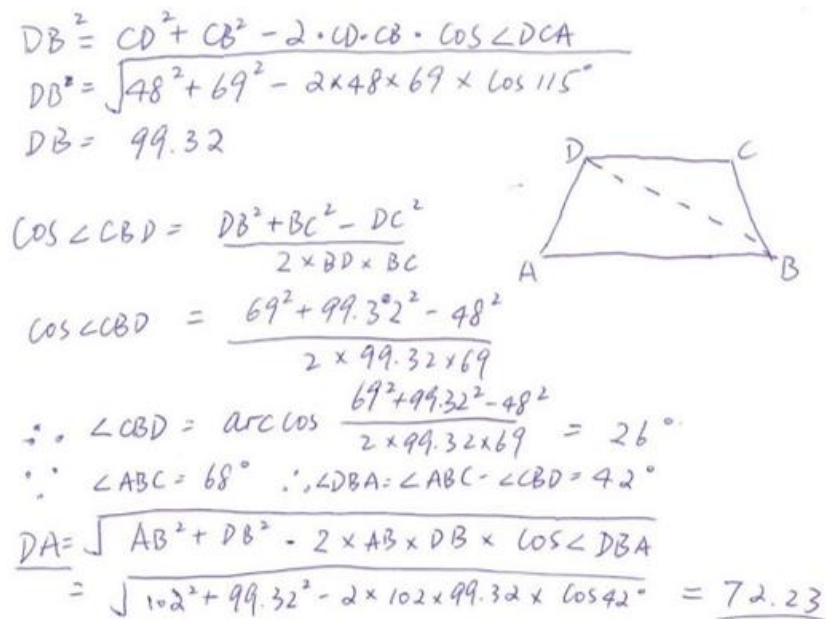 DB² = CD² + CB² - 2·CD·CB·COS∠DCA
DB² = √48² + 69² - 2×48×69×COS 115°
DB = 99.32
D C
COS∠CBD = DB² + BC² - DC² / 2×BD×BC
A B
COS∠CBD = 69² + 99.32² - 48² / 2×99.32×69
∴ ∠CBD = arccos 69²+99.32²-48² / 2×99.32×69 = 26°
∵ ∠ABC = 68° ∴∠DBA=∠ABC-∠CBD=42°
DA = √AB² + DB² - 2×AB×DB×COS∠DBA
= √102² + 99.32² - 2×102×99.32×COS42° = 72.23